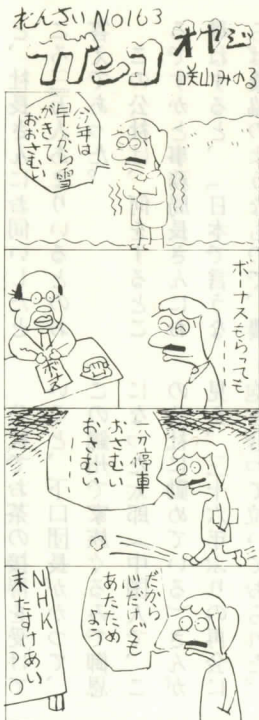 まんさい No163
ガンコオヤジ
咲山みのる
今年は
早くから雪
がきて
おおさむい
ボーナスもらっても
ボーナス
一分停車
おさむい
おさむい
だから
心だけでも
あたため
よう
NHK
末たすけあい